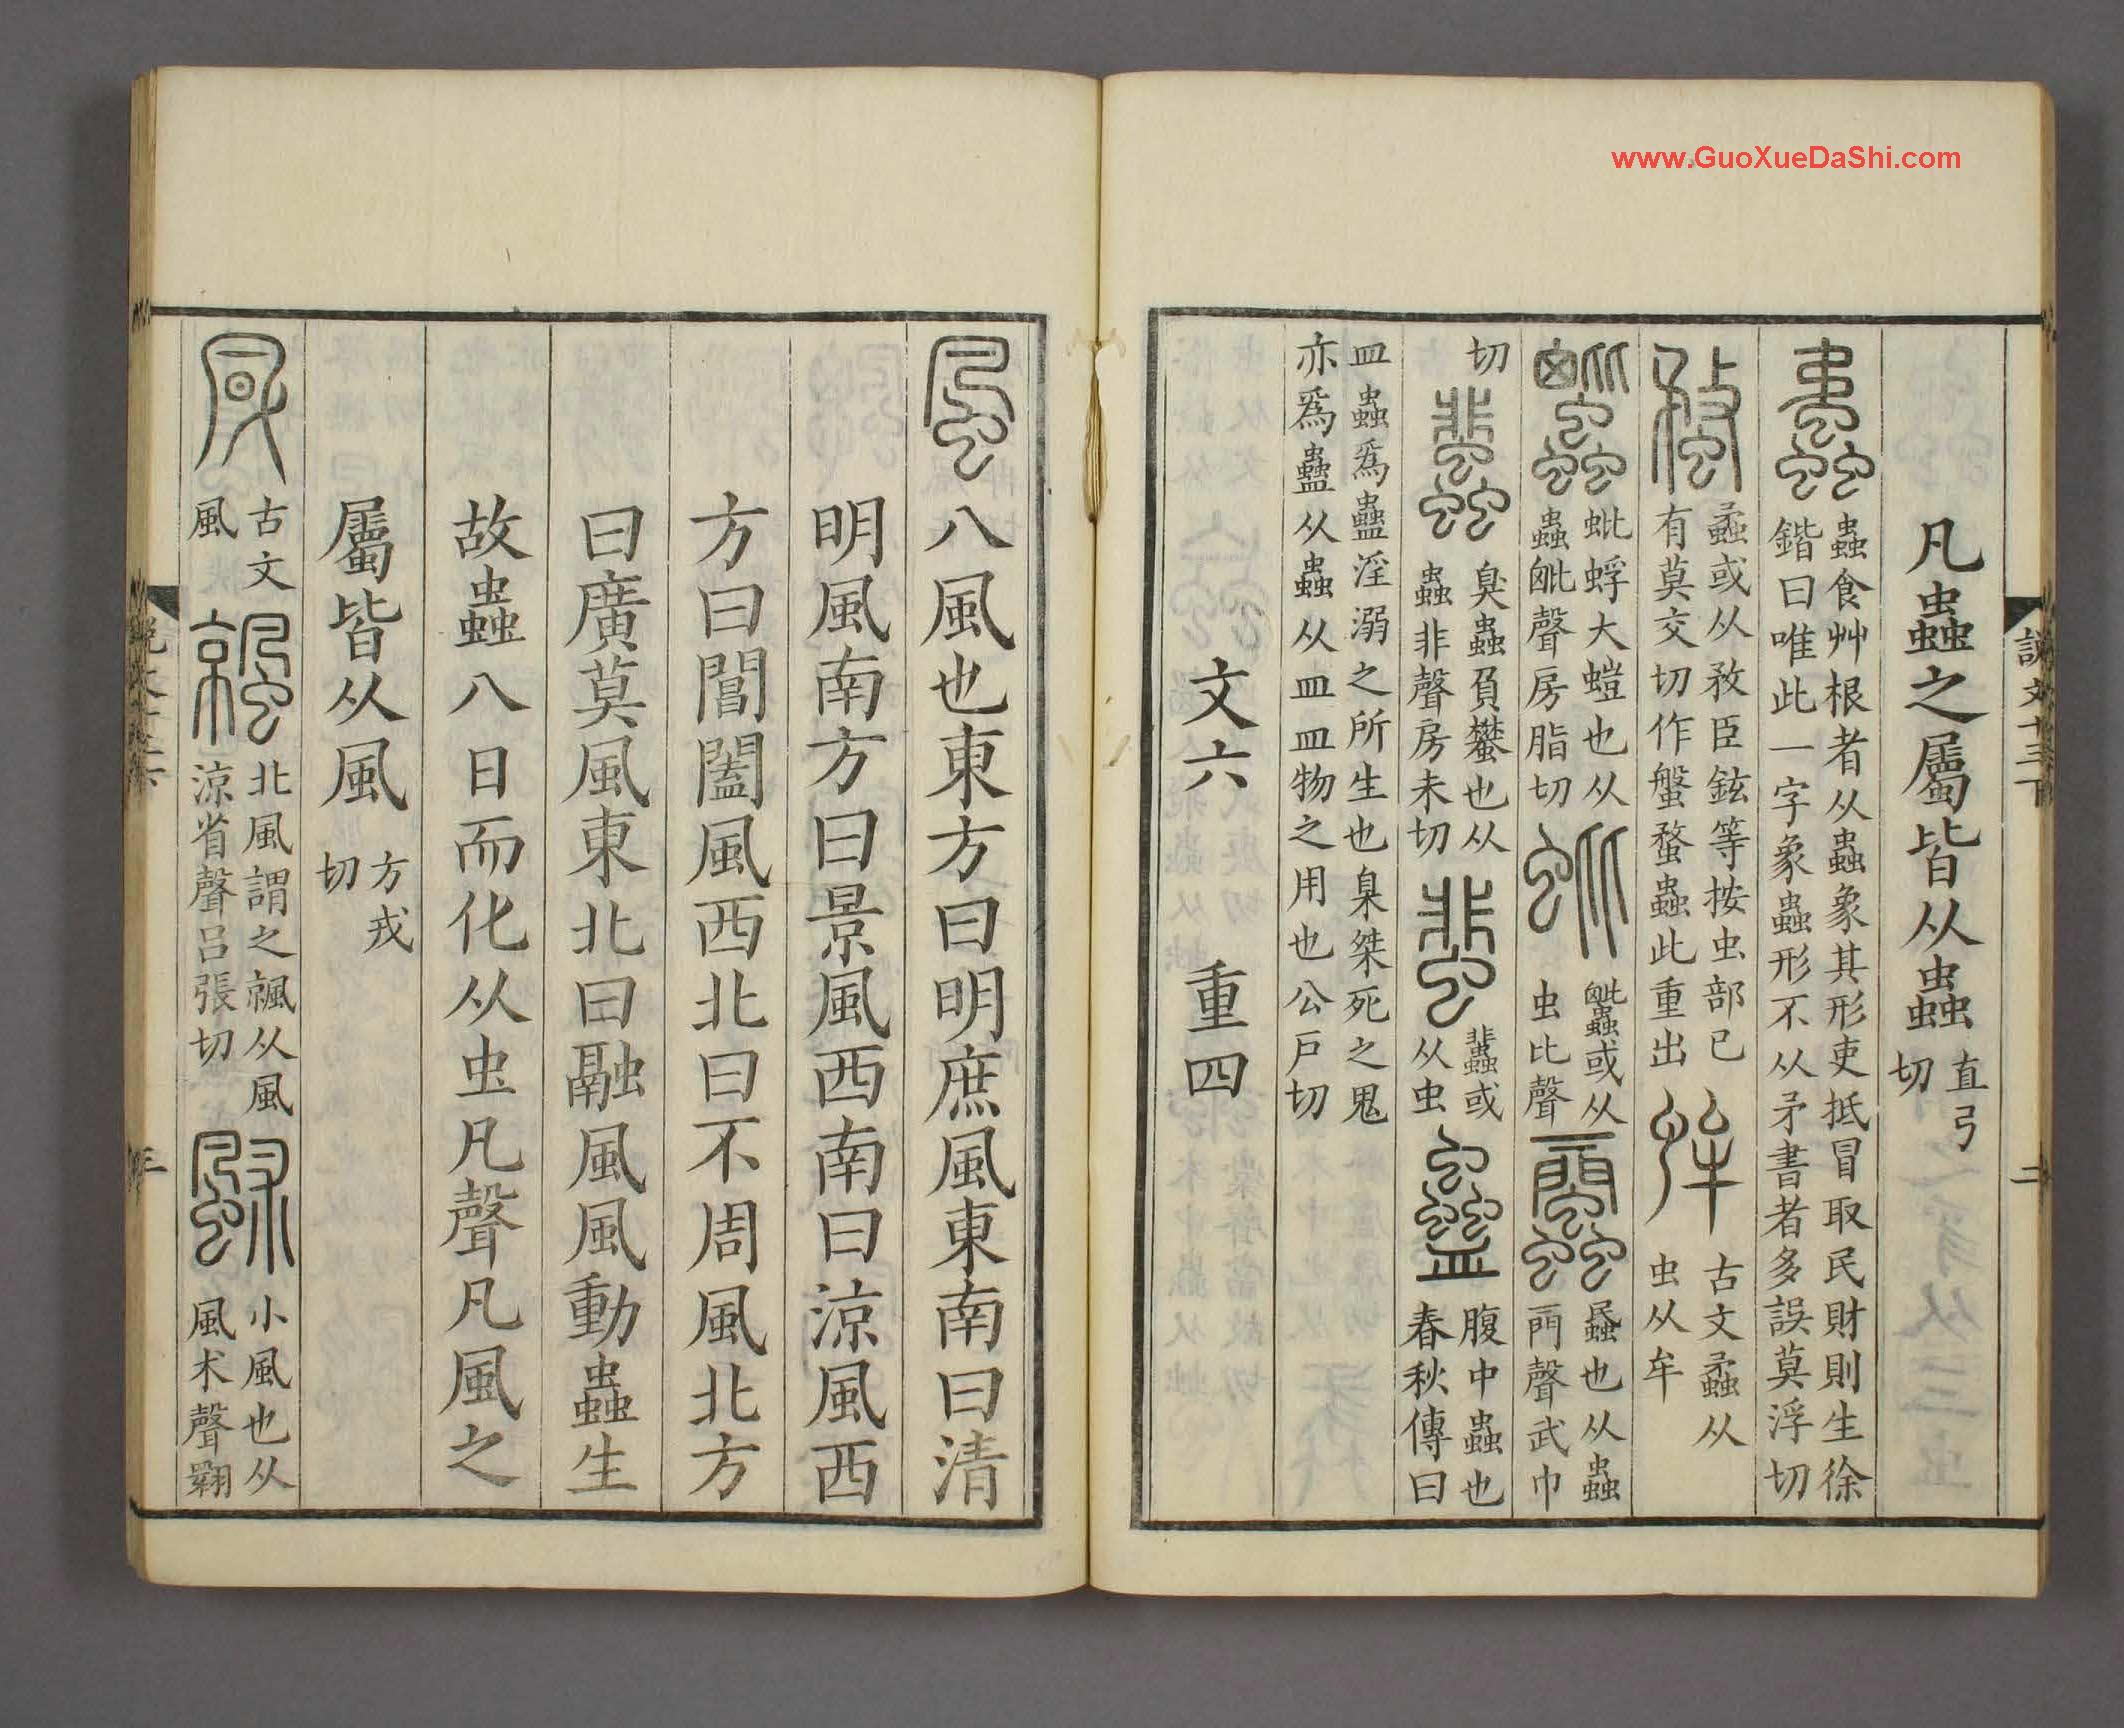 www.GuoXueDaShi.com
說文十三下
二
凡蟲之屬皆从蟲直弓切
蟲食艸根者从蟲象其形吏抵冒取民財則生徐
鍇曰唯此一字象蟲形不从矛書者多誤莫浮切
蟊或从敄臣鉉等按虫部已
有莫交切作盤蝥蟲此重出
古文蟊从
虫从牟
蚍蜉大螘也从
蟲𣬉聲房脂切
或从
虫比聲
蟲也从蟲
門聲武巾
切
臭蟲負蠜也从
蟲非聲房未切
蠹或
从虫
腹中蟲也
春秋傳曰
皿蟲爲蠱淫溺之所生也臬桀死之鬼
亦爲蠱从蟲从皿皿物之用也公戶切
文六 重四
風八風也東方曰明庶風東南曰清
明風南方曰景風西南曰涼風西
方曰閶闔風西北曰不周風北方
曰廣莫風東北曰融風風動蟲生
故蟲八日而化从虫凡聲凡風之
屬皆从風方戎切
古文
風
北風謂之飊从風
涼省聲呂張切
小風也从
風术聲翾
三